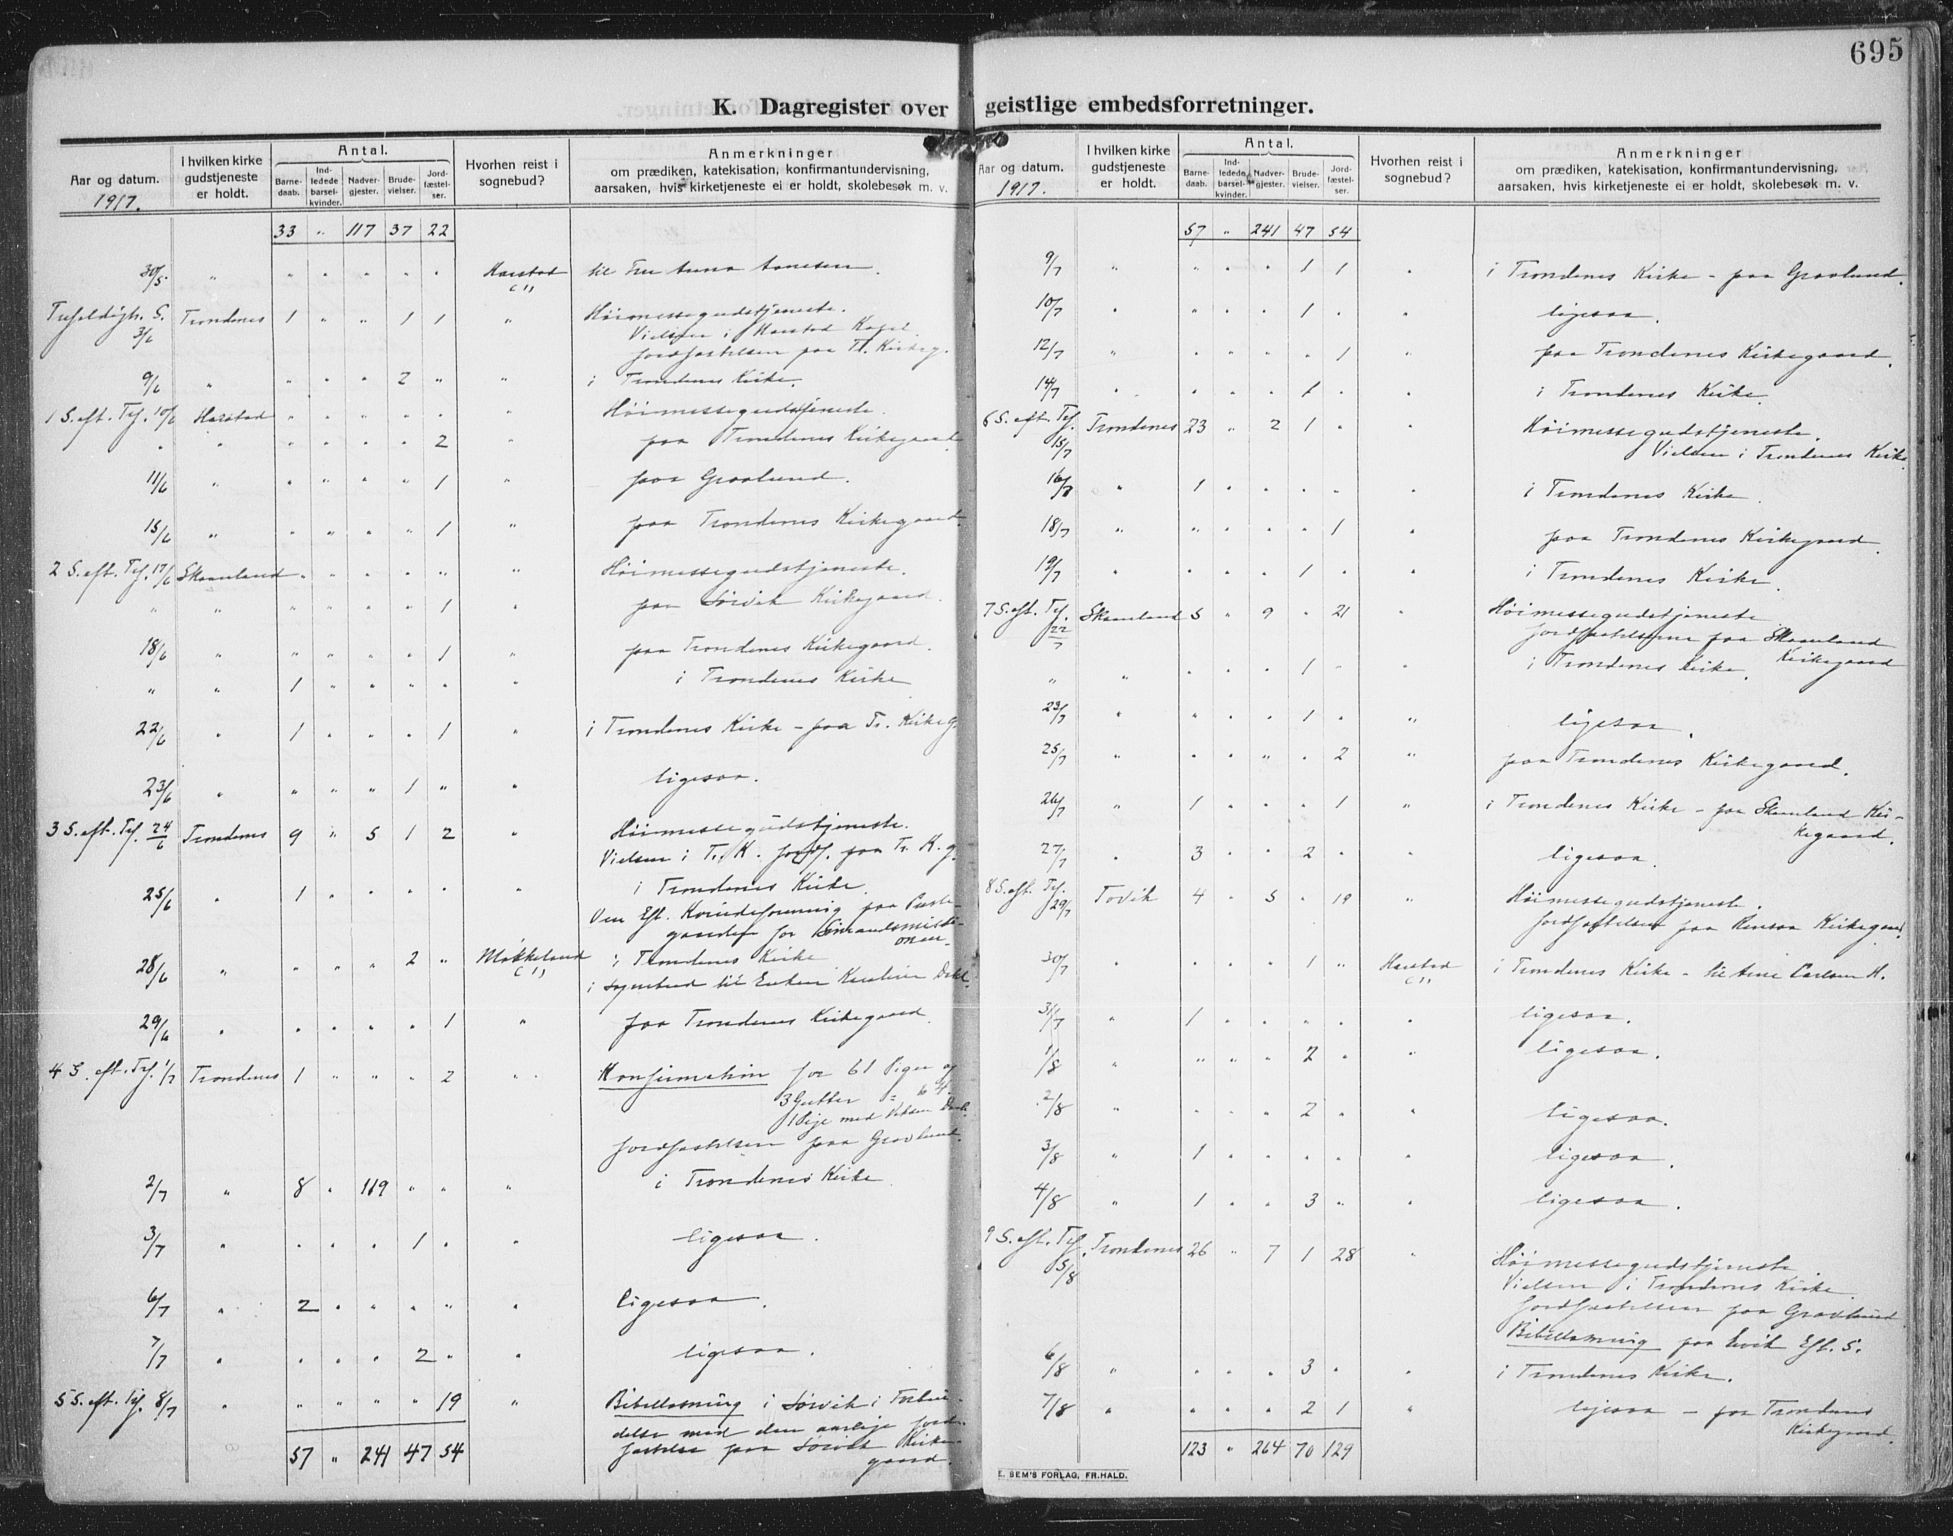 695
K. Dagregister over geistlige embedsforretninger.
Aar og datum. 1917. I hvilken kirke gudstjeneste er holdt. Antal. Barnedaab. Indledede barselkvinder. Nadvergjester. Brudevielser. Jordfæstelser. Hvorhen reist i sognebud? Anmerkninger om prædiken, katekisation, konfirmantundervisning, aarsaken, hvis kirketjeneste ei er holdt, skolebesøk m. v.
33 " 117 37 22
30/5 " " " " " " Harstad (1) til Fru Anna
3/6 Trondenes 1 " " 1 1 " Høimessegudstjeneste.
Vielsen i Harstad Kapel.
Jordfæstelsen paa Tr. Kirkeg.
9/6 " " " " 2 " " i Trondenes Kirke.
1 S. eft. Tref. 10/6 Harstad " " " " " " Høimessegudstjeneste.
" " " " " " 2 " paa Trondenes Kirkegaard.
11/6 " " " " " 1 " paa Gravlund.
15/6 " " " " " 1 " paa Trondenes Kirkegaard.
2 S. eft. Tref. 17/6 Skaanland " " " " " " Høimessegudstjeneste.
" " " " " " 1 " paa Sørvik Kirkegaard.
18/6 " " " " " 1 " paa Trondenes Kirkegaard.
" " 1 " " " " " i Trondenes Kirke
22/6 " 1 " " " 1 " i Trondenes Kirke - paa Tr. Kirkeg.
23/6 " " " " 1 " " ligesaa.
3 S. eft. Tref. 24/6 Trondenes 9 " 5 1 2 " Høimessegudstjeneste.
Vielsen i Tr. K. Jordf. paa Tr. K.g.
25/6 " 1 " " " " " i Trondenes Kirke.
Em. Eft. Kvindeforening paa Preste-
gaarden for Sømandsmissi-
onen
28/6 " " " " 2 " Møkkeland (1) i Trondenes Kirke
i sognebud til Enken
29/6 " " " " " 1 " paa Trondenes Kirkegaard.
4 S. eft. Tref. 1/7 Trondenes 1 " " " 2 " Konfirmation for 61 Piger og
3 Gutter
1 Pige med
Jordfæstelsen paa Gravlund.
2/7 " 8 " 119 " " " i Trondenes Kirke
3/7 " " " " 1 " " ligesaa.
6/7 " 2 " " " " " ligesaa.
7/7 " " " " 2 " " ligesaa.
5 S. eft. Tref. 8/7 " " " " " 19 " Bibellæsning i Sørvik i Forbin-
delse med den aarlige Jord-
fæstelse paa Sørvik Kirke-
gaard.
57 " 241 47 54
Aar og datum. 1917. I hvilken kirke gudstjeneste er holdt. Antal. Barnedaab. Indledede barselkvinder. Nadvergjester. Brudevielser. Jordfæstelser. Hvorhen reist i sognebud? Anmerkninger om prædiken, katekisation, konfirmantundervisning, aarsaken, hvis kirketjeneste ei er holdt, skolebesøk m. v.
57 " 241 47 54
9/7 " " " " 1 1 " i Trondenes Kirke - paa Gravlund.
10/7 " " " " 1 " " ligesaa.
12/7 " " " " " 1 " paa Trondenes Kirkegaard.
14/7 " " " " 1 " " i Trondenes Kirke.
6 S. eft. Tref. 15/7 Trondenes 23 " 2 1 " " Høimessegudstjeneste.
Vielsen i Trondenes Kirke
16/7 " 1 " " " " " i Trondenes Kirke.
18/7 " " " " " 1 " paa Trondenes Kirkegaard.
19/7 " " " " 1 " " i Trondenes Kirke.
7 S. eft. Tref. 22/7 Skaanland 5 " 9 " 21 " Høimessegudstjeneste
Jordfæstelserne paa Skaanland
Kirkegaard
" " " " " 1 " " i Trondenes Kirke.
23/7 " " " " 1 " " ligesaa.
25/7 " " " " " 2 " paa Trondenes Kirkegaard.
26/7 " 1 " " " 1 " i Trondenes Kirke - paa Skaanland Kir-
kegaard.
27/7 " 3 " " 2 " " ligesaa.
8 S. eft. Tref. 29/7 Tovik 4 " 5 " 19 " Høimessegudstjeneste.
Jordfæstelsen paa Rensaa Kirkegaard.
30/7 " " " " 1 " Harstad (1) i Trondenes Kirke - til Arne Carlsen H.
31/7 " 1 " " " " " ligesaa.
1/8 " " " " 2 " " ligesaa.
2/8 " " " " 2 " " ligesaa.
3/8 " 1 " " " " " ligesaa.
4/8 " 1 " " 3 " " ligesaa.
9 S. eft. Tref. 5/8 Trondenes 26 " 7 1 28 " Høimessegudstjeneste
Vielsen i Trondenes Kirke.
Jordfæstelsen paa Gravlund.
Bibellæsning paa Ervik Eft. S.
6/8 " " " " 3 " " i Trondenes Kirke.
7/8 " " " " 2 1 " ligesaa - paa Trondenes
Kirkegaard.
123 " 264 70 129
E. SEM'S FORLAG, FR.HALD.